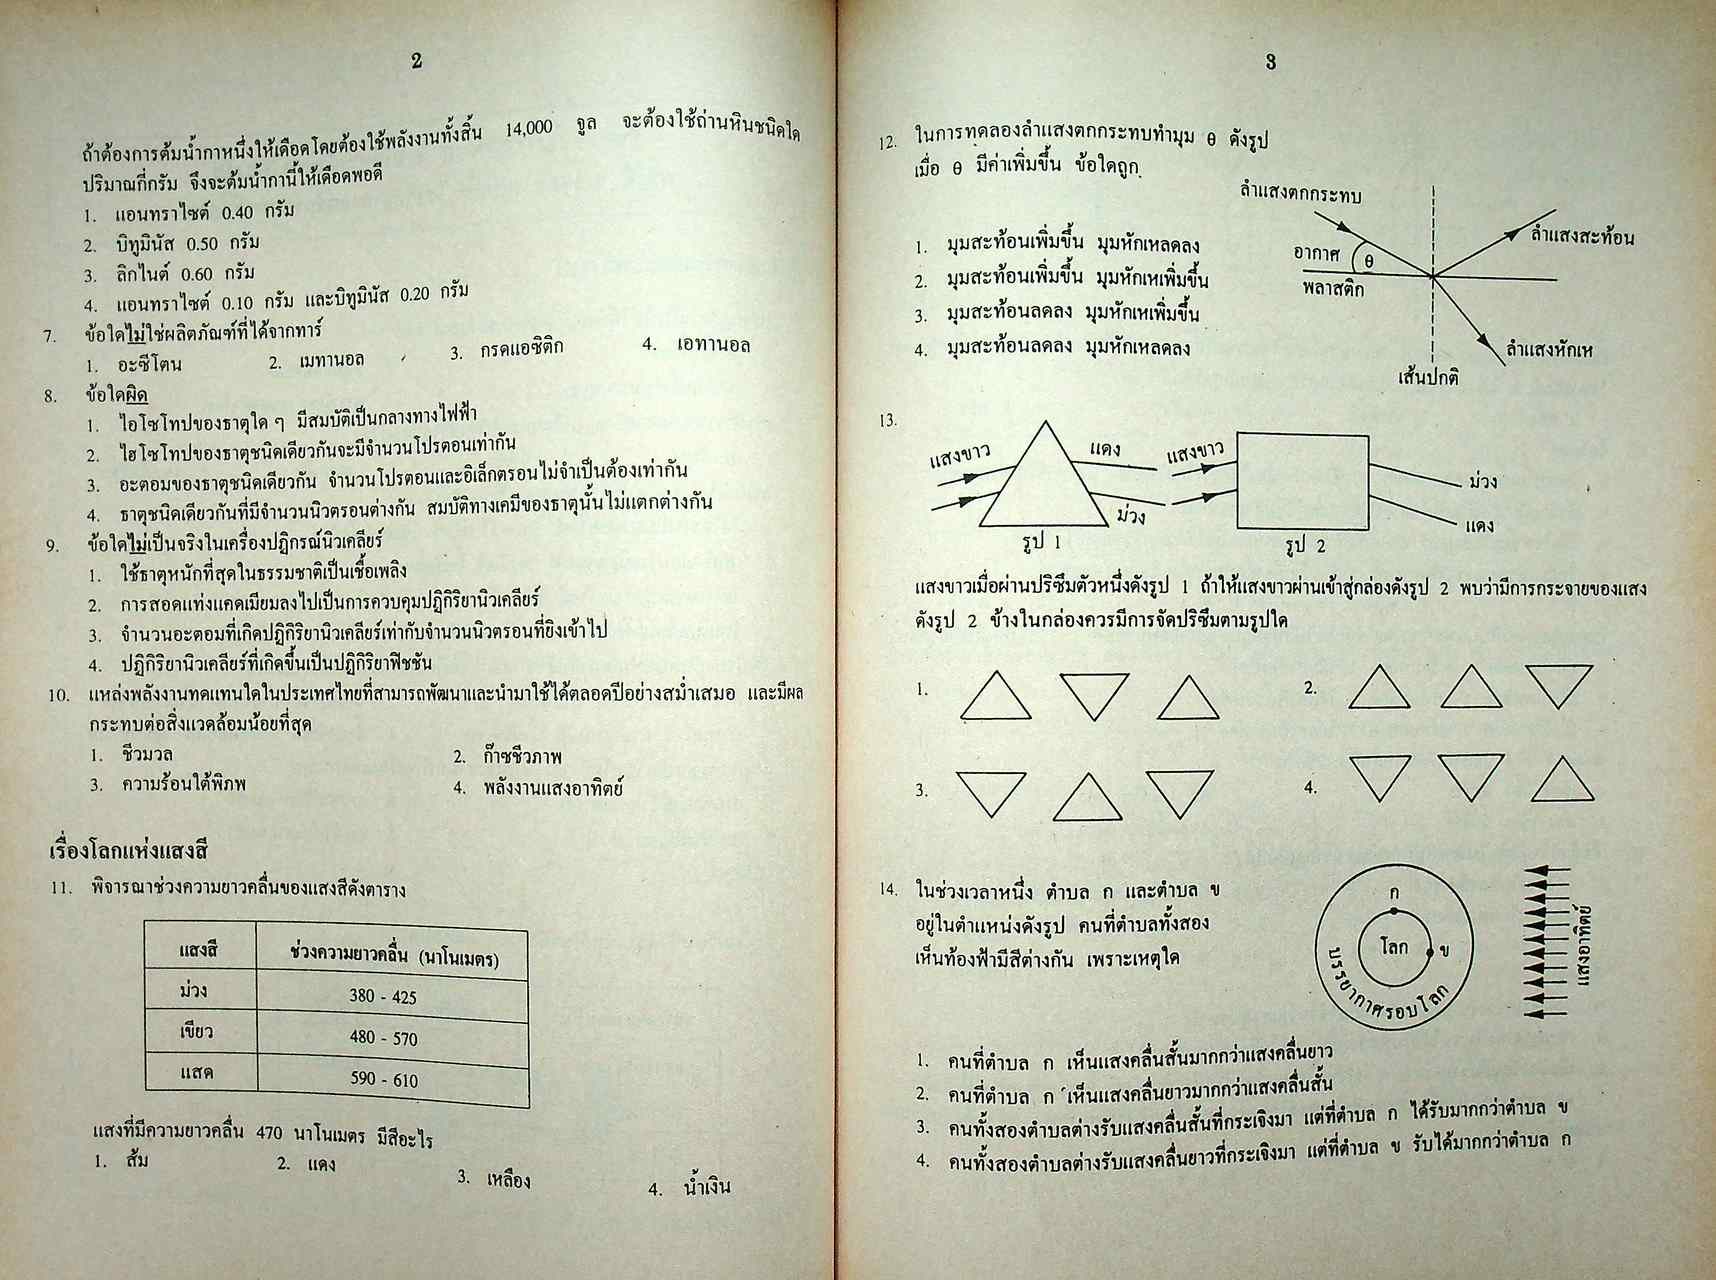 2
ถ้าต้องการต้มน้ำกาหนึ่งให้เดือดโดยต้องใช้พลังงานทั้งสิ้น 14,000 จูล จะต้องใช้ถ่านหินชนิดใด
ปริมาณกี่กรัม จึงจะต้มน้ำกานี้ให้เดือดพอดี
1. แอนทราไซต์ 0.40 กรัม
2. บิทูมินัส 0.50 กรัม
3. ลิกไนต์ 0.60 กรัม
4. แอนทราไซต์ 0.10 กรัม และบิทูมินัส 0.20 กรัม
7. ข้อใดไม่ใช่ผลิตภัณฑ์ที่ได้จากทาร์
1. อะซีโตน 2. เมทานอล 3. กรดแอซิติก 4. เอทานอล
8. ข้อใดผิด
1. ไอโซโทปของธาตุใด ๆ มีสมบัติเป็นกลางทางไฟฟ้า
2. ไฮโซโทปของธาตุชนิดเดียวกันจะมีจำนวนโปรตอนเท่ากัน
3. อะตอมของธาตุชนิดเดียวกัน จำนวนโปรตอนและอิเล็กตรอนไม่จำเป็นต้องเท่ากัน
4. ธาตุชนิดเดียวกันที่มีจำนวนนิวตรอนต่างกัน สมบัติทางเคมีของธาตุนั้นไม่แตกต่างกัน
9. ข้อใดไม่เป็นจริงในเครื่องปฏิกรณ์นิวเคลียร์
1. ใช้ธาตุหนักที่สุดในธรรมชาติเป็นเชื้อเพลิง
2. การสอดแท่งแคดเมียมลงไปเป็นการควบคุมปฏิกิริยานิวเคลียร์
3. จำนวนอะตอมที่เกิดปฏิกิริยานิวเคลียร์เท่ากับจำนวนนิวตรอนที่ยิงเข้าไป
4. ปฏิกิริยานิวเคลียร์ที่เกิดขึ้นเป็นปฏิกิริยาฟิชชัน
10. แหล่งพลังงานทดแทนใดในประเทศไทยที่สามารถพัฒนาและนำมาใช้ได้ตลอดปีอย่างสม่ำเสมอ และมีผล
กระทบต่อสิ่งแวดล้อมน้อยที่สุด
1. ชีวมวล 2. ก๊าซชีวภาพ
3. ความร้อนใต้พิภพ 4. พลังงานแสงอาทิตย์
เรื่องโลกแห่งแสงสี
11. พิจารณาช่วงความยาวคลื่นของแสงสีดังตาราง
แสงสี ช่วงความยาวคลื่น (นาโนเมตร)
ม่วง 380 - 425
เขียว 480 - 570
แสด 590 - 610
แสงที่มีความยาวคลื่น 470 นาโนเมตร มีสีอะไร
1. ส้ม 2. แดง 3. เหลือง 4. น้ำเงิน
3
12. ในการทดลองลำแสงตกกระทบทำมุม θ ดังรูป
เมื่อ θ มีค่าเพิ่มขึ้น ข้อใดถูก
1. มุมสะท้อนเพิ่มขึ้น มุมหักเหลดลง
2. มุมสะท้อนเพิ่มขึ้น มุมหักเหเพิ่มขึ้น
3. มุมสะท้อนลดลง มุมหักเหเพิ่มขึ้น
4. มุมสะท้อนลดลง มุมหักเหลดลง
ลำแสงตกกระทบ
ลำแสงสะท้อน
อากาศ θ
พลาสติก
ลำแสงหักเห
เส้นปกติ
13.
แสงขาว แดง
ม่วง
รูป 1
แสงขาว ม่วง
แดง
รูป 2
แสงขาวเมื่อผ่านปริซึมตัวหนึ่งดังรูป 1 ถ้าให้แสงขาวผ่านเข้าสู่กล่องดังรูป 2 พบว่ามีการกระจายของแสง
ดังรูป 2 ข้างในกล่องควรมีการจัดปริซึมตามรูปใด
1. 2.
3. 4.
14. ในช่วงเวลาหนึ่ง ตำบล ก และตำบล ข
อยู่ในตำแหน่งดังรูป คนที่ตำบลทั้งสอง
เห็นท้องฟ้ามีสีต่างกัน เพราะเหตุใด
ก
โลก ข
บรรยากาศรอบโลก
แสงอาทิตย์
1. คนที่ตำบล ก เห็นแสงคลื่นสั้นมากกว่าแสงคลื่นยาว
2. คนที่ตำบล ก เห็นแสงคลื่นยาวมากกว่าแสงคลื่นสั้น
3. คนทั้งสองตำบลต่างรับแสงคลื่นสั้นที่กระเจิงมา แต่ที่ตำบล ก ได้รับมากกว่าตำบล ข
4. คนทั้งสองตำบลต่างรับแสงคลื่นยาวที่กระเจิงมา แต่ที่ตำบล ข รับได้มากกว่าตำบล ก